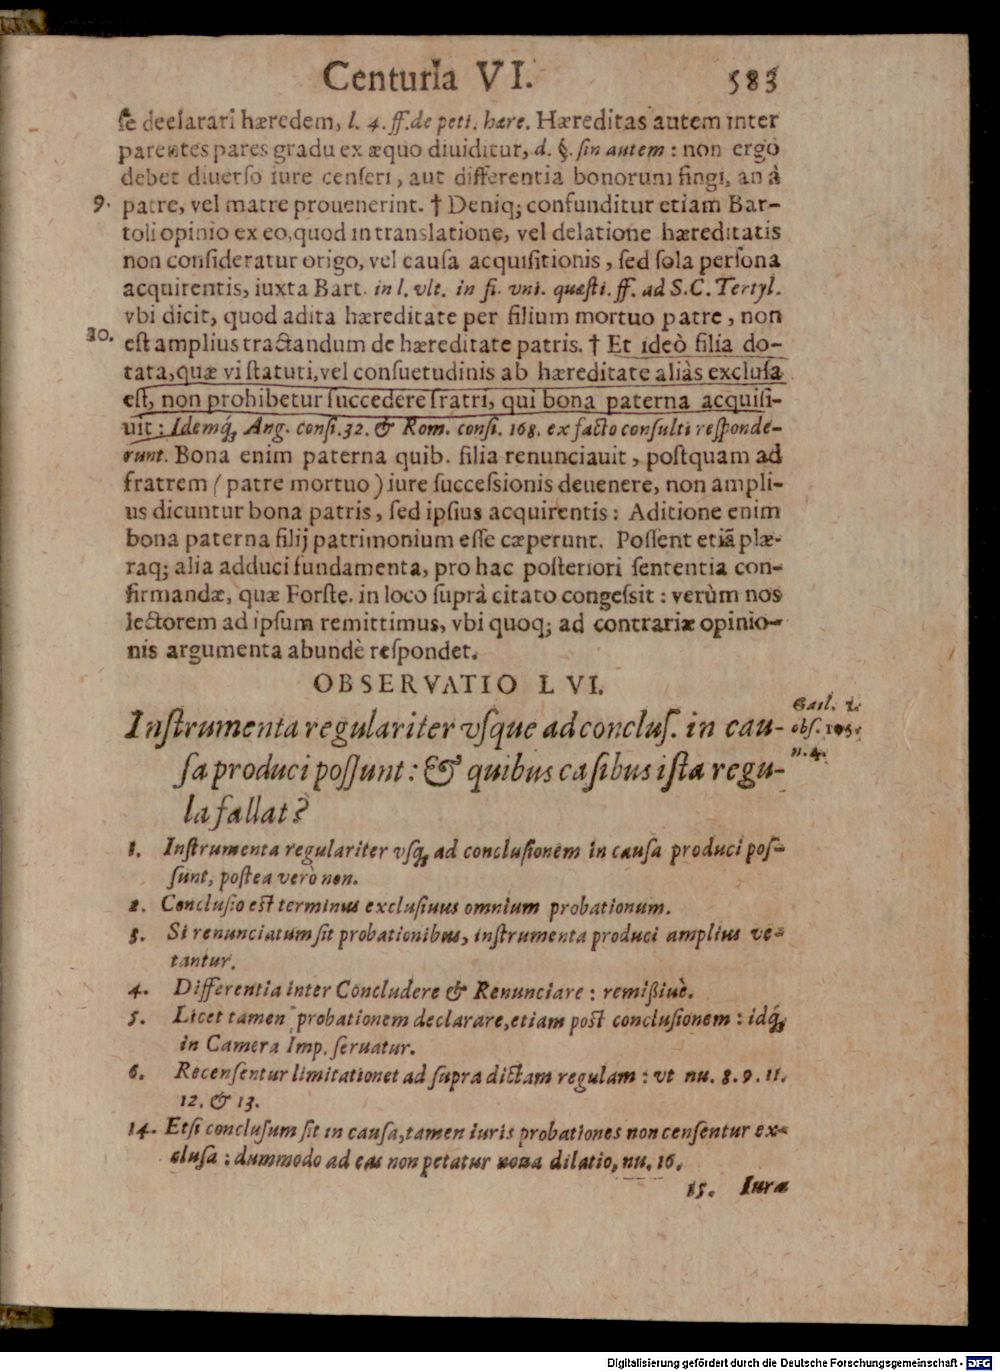 Centuria VI. 583
se declarari hæredem, l. 4. ff. de peti. hære. Hæreditas autem inter
parentes pares gradu ex æquo diuiditur, d. §. sin autem : non ergo
debet diuerso iure censeri, aut differentia bonorum fingi, an à
9. patre, vel matre prouenerint. † Deniq; confunditur etiam Bar-
toli opinio ex eo, quod in translatione, vel delatione hæreditatis
non consideratur origo, vel causa acquisitionis, sed sola persona
acquirentis, iuxta Bart. in l. vlt. in fi. vni. quæsti. ff. ad S.C. Tertyl.
vbi dicit, quod adita hæreditate per filium mortuo patre, non
10. est amplius tractandum de hæreditate patris. † Et ideò filia do-
tata, quæ vi statuti, vel consuetudinis ab hæreditate aliàs exclusa
est, non prohibetur succedere fratri, qui bona paterna acquisi-
uit : Idemq́; Ang. consi. 32. & Rom. consi. 168. ex facto consulti responde-
runt. Bona enim paterna quib. filia renunciauit, postquam ad
fratrem (patre mortuo) iure successionis deuenere, non ampli-
us dicuntur bona patris, sed ipsius acquirentis : Aditione enim
bona paterna filij patrimonium esse cæperunt. Possent etiã plæ-
raq; alia adduci fundamenta, pro hac posteriori sententia con-
firmandæ, quæ Forste. in loco suprà citato congessit : verùm nos
lectorem ad ipsum remittimus, vbi quoq; ad contrariæ opinio-
nis argumenta abundè respondet.
OBSERVATIO LVI.
Instrumenta regulariter vsque ad conclus. in cau-
sa produci possunt : & quibus casibus ista regu-
la fallat?
Gail. 1.
obs. 105.
n. 4.
1. Instrumenta regulariter vsq́; ad conclusionem in causa produci pos-
sunt, postea verò non.
2. Conclusio est terminus exclusiuus omnium probationum.
3. Si renunciatum sit probationibus, instrumenta produci amplius ve-
tantur.
4. Differentia inter Concludere & Renunciare : remißiuè.
5. Licet tamen probationem declarare, etiam post conclusionem : idq́;
in Camera Imp. seruatur.
6. Recensentur limitationet ad supra dictam regulam : vt nu. 8. 9. 11.
12. & 13.
14. Etsi conclusum sit in causa, tamen iuris probationes non censentur ex-
clusa : dummodo ad eas non petatur noua dilatio, nu. 16.
15. Iura
Digitalisierung gefördert durch die Deutsche Forschungsgemeinschaft - DFG